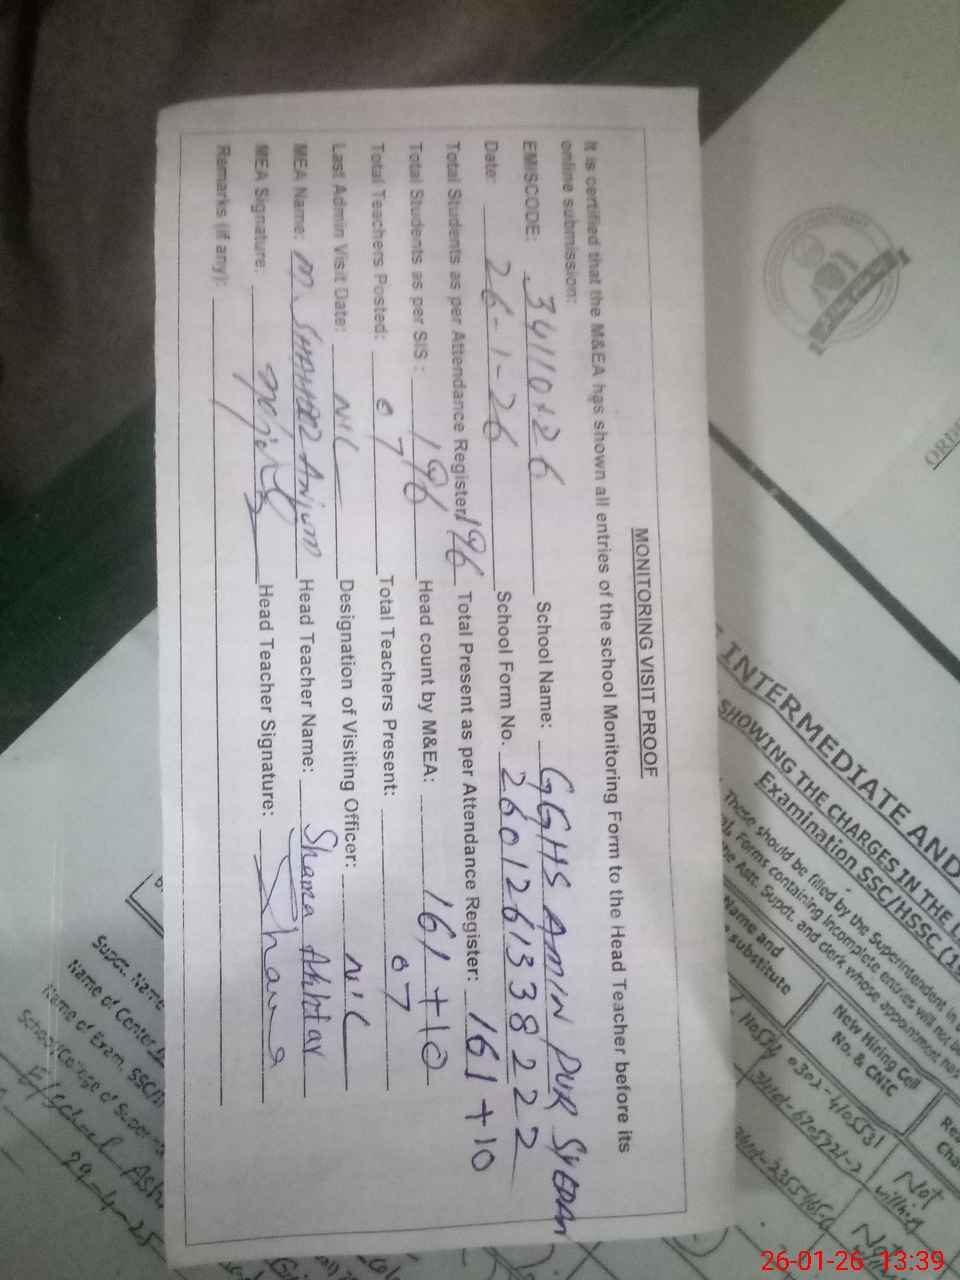 MONITORING VISIT PROOF
It is certified that the M&EA has shown all entries of the school Monitoring Form to the Head Teacher before its
online submission:
EMISCODE: 34110126 School Name: GGHS AMIN PUR SYEDAN
Date: 26-1-26 School Form No. 2601261338222
Total Students as per Attendance Register: 196 Total Present as per Attendance Register: 161+10
Total Students as per SIS: 196 Head count by M&EA: 161+10
Total Teachers Posted: 07 Total Teachers Present: 07
Last Admin Visit Date: NIL Designation of Visiting Officer: NIL
MEA Name: M. SHAHBAZ Anjum Head Teacher Name: Shama Akhtar
MEA Signature: Head Teacher Signature: Shama
Remarks (if any):
INTERMEDIATE AND
SHOWING THE CHARGES IN THE
Examination SSC/HSSC
These should be filled by the Superintendent in
Forms containing incomplete entries will not be
the Astt. Supdt. and clerk whose appointment has
Name and
substitute
New Hiring Cell
No. & CNIC
0302-4105531
Not
willing
Supdt. Name
Name of Center
Name of Exam. SSC/
School/College of
29-4-25
26-01-26 13:39